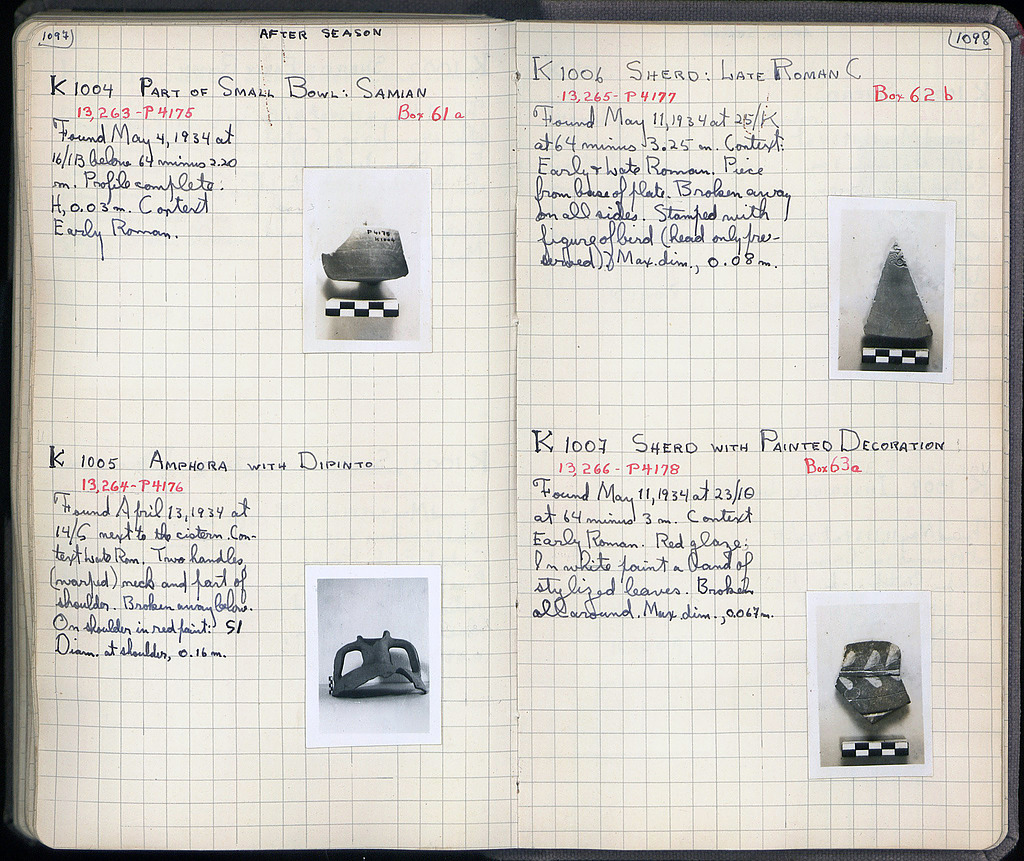 1097
AFTER SEASON
K 1004 PART OF SMALL BOWL: SAMIAN
13,263-P4175 Box 61 a
Found May 4, 1934 at
16/IB below 64 minus 2.20
m. Profile complete.
H, 0.03 m. Context
Early Roman.
P4175
K1004
K 1005 AMPHORA WITH DIPINTO
13,264-P4176
Found April 13, 1934 at
14/S next to the cistern. Con-
text Late Rom. Two handles,
(warped) neck and part of
shoulder. Broken away below.
On shoulder in red paint: SI
Diam. at shoulder, 0.16 m.
1098
K 1006 SHERD: LATE ROMAN C
13,265-P4177 Box 62 b
Found May 11, 1934 at 25/K
at 64 minus 3.25 m. Context:
Early & Late Roman. Piece
from base of plate. Broken away
on all sides. Stamped with
figure of bird (head only pre-
served)? Max. dim., 0.08 m.
K 1007 SHERD WITH PAINTED DECORATION
13,266-P4178 Box 63a
Found May 11, 1934 at 23/IΘ
at 64 minus 3 m. Context
Early Roman. Red glaze;
In white paint a band of
stylized leaves. Broken
all around. Max. dim., 0.067 m.